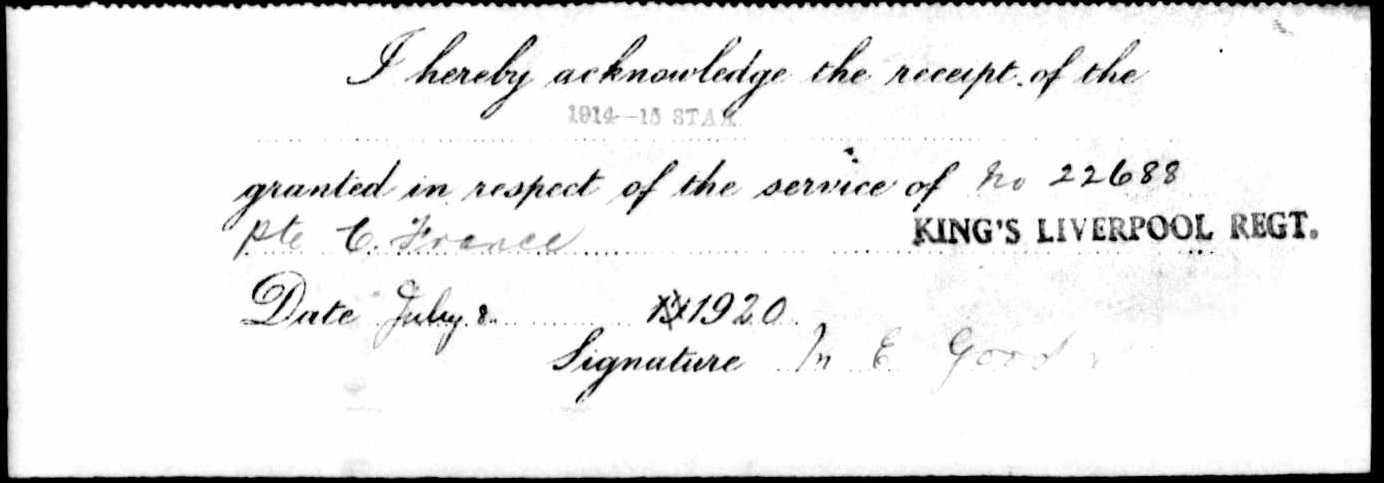 I hereby acknowledge the receipt of the
1914-15 STAR
granted in respect of the service of No 22688
Pte C. France KING'S LIVERPOOL REGT.
Date July 8 1920
Signature M E Good